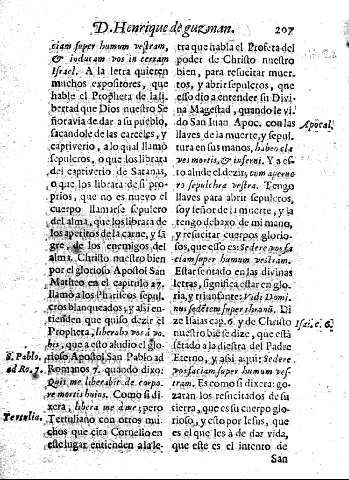 D. Henrique de guzman. 207
ciam super humum vestram,
& inducam vos in terram
Israel. A la letra quieren
muchos expositores, que
hable el Propheta de la li-
bertad que Dios nuestro Se
ñor avia de dar a su pueblo,
sacandole de las carceles, y
captiverio, a lo qual llamò
sepulcros, o que los librata
del captiverio de Satanas,
o que los librata de si pro-
prios, que no es nuevo el
cuerpo llamarse sepulcro
del alma, que los librata de
los apetitos de la carne, y sã
gre, de los enemigos del
alma. Christo nuestro bien
por el glorioso Apostol San
Matteo en el capitulo 27.
llamò a los Phariseos sepul-
cros blanqueados, y assi en-
tienden que quiso dezir el
Propheta, liberabo vos à vo
bis, que a esto aludio el glo-
rioso Apostol San Pablo ad
Romanos 7. quando dixo:
Quis me liberabit de corpo-
re mortis huius. Como si di
xera, libera me à me; pero
Tertuliano con otros mu-
chos que cita Cornelio en
este lugar entienden a la le-
S. Pablo.
ad Ro. 7.
Tertulia.
tra que habla el Profeta del
poder de Christo nuestro
bien, para resucitar muer-
tos, y abrir sepulcros, que
esso dio a entender su Divi
na Magestad, quando le vi-
do San Iuan Apoc. con las
llaves de la muerte, y sepul-
tura en sus manos, habeo cla
ves mortis, & inferni. Y a es-
to alude el dezir, cum aperue
ro sepulchra vestra. Tengo
llaves para abrir sepulcros,
soy señor de la muerte, y la
tengo debaxo de mi mano,
y resucitar cuerpos glorio-
sos, que esso es: Sedere vos fa
ciam super humum vestram.
Estar sentado en las divinas
letras, significa estar en glo-
ria, y triunfante: Vidi Domi-
num sedetem super thronũ. Di
ze Isaias cap. 6. y de Christo
nuestro biē se dize, que està
sētado a la diestra del Padre
Eterno, y assi aqui: Sedere
vos faciam super humum ves-
tram. Es como si dixera: go-
zaran los resucitados de su
tierra, que es su cuerpo glo-
rioso, y esto por Iesus, que
es el que les à de dar vida,
que este es el intento de
San
Apocal.
Isai. c. 6.